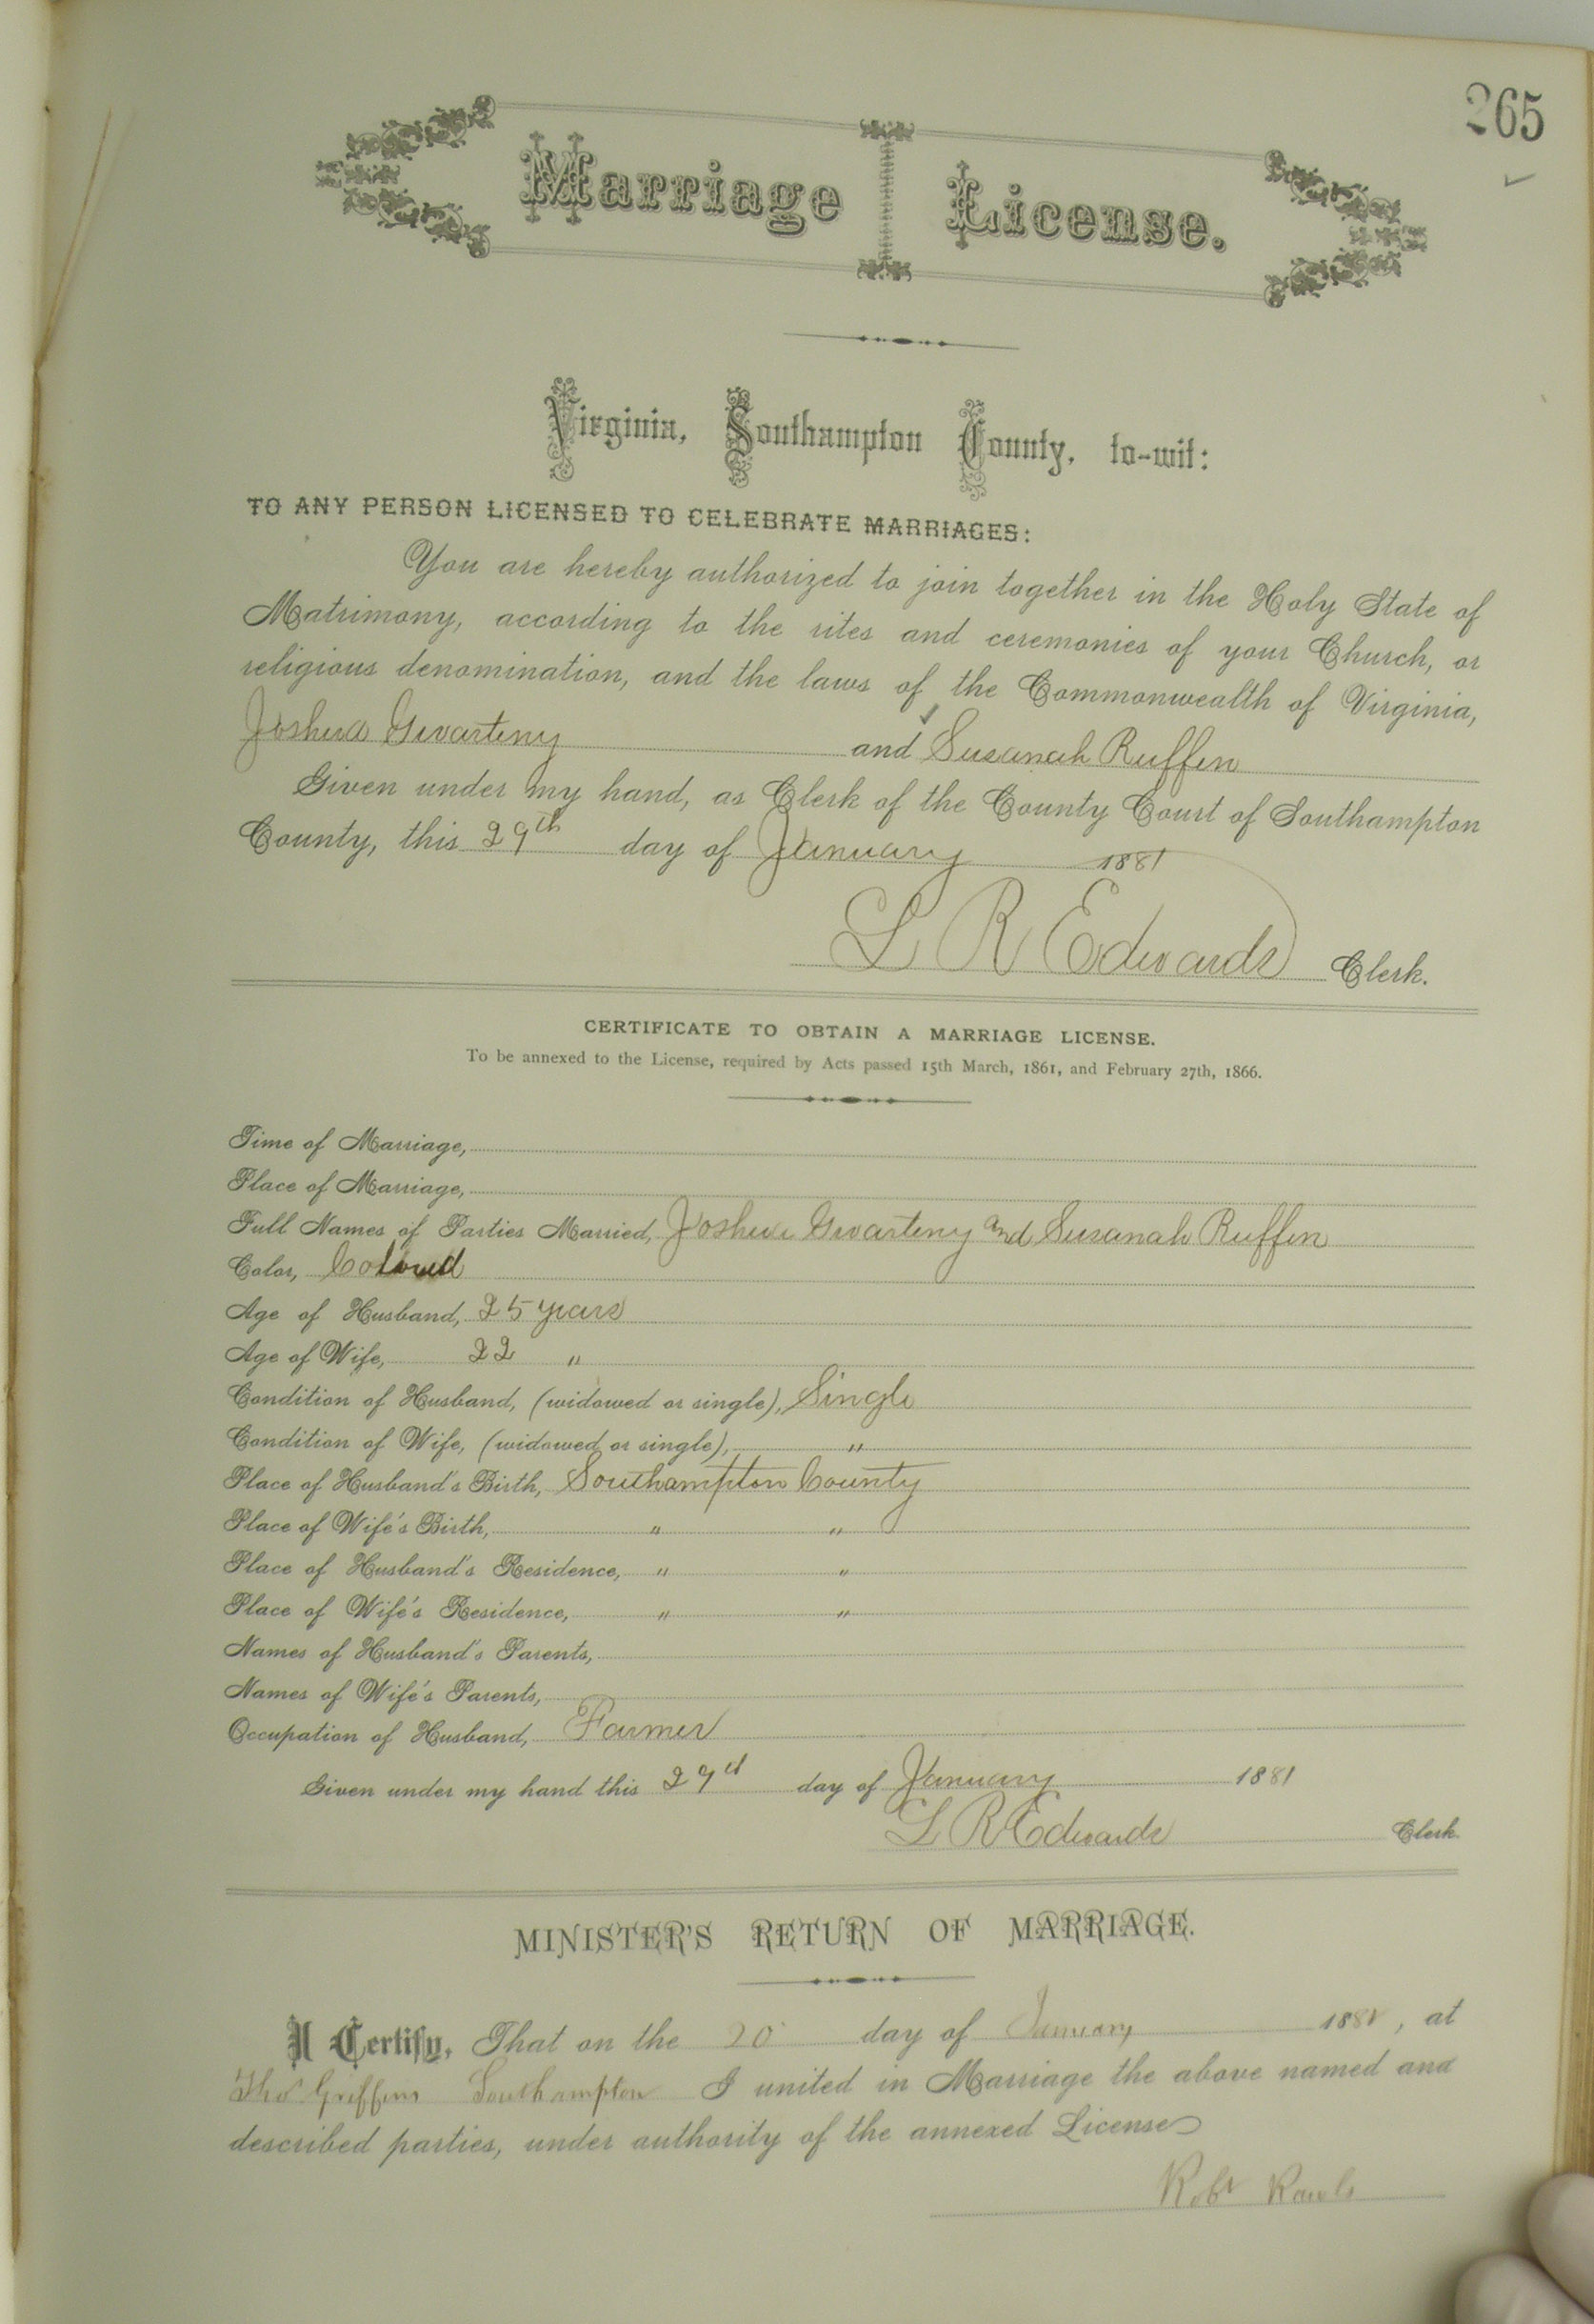 265
Marriage License.
Virginia, Southampton County, to-wit:
TO ANY PERSON LICENSED TO CELEBRATE MARRIAGES:
You are hereby authorized to join together in the Holy State of
Matrimony, according to the rites and ceremonies of your Church, or
religious denomination, and the laws of the Commonwealth of Virginia,
Joshua Gwarteny and Susanah Ruffin
Given under my hand, as Clerk of the County Court of Southampton
County, this 29th day of January 1881
L R Edwards Clerk.
CERTIFICATE TO OBTAIN A MARRIAGE LICENSE.
To be annexed to the License, required by Acts passed 15th March, 1861, and February 27th, 1866.
Time of Marriage,
Place of Marriage,
Full Names of Parties Married, Joshua Gwarteny and Susanah Ruffin
Color, Colored
Age of Husband, 25 years
Age of Wife, 22 "
Condition of Husband, (widowed or single), Single
Condition of Wife, (widowed or single), "
Place of Husband's Birth, Southampton County
Place of Wife's Birth, " "
Place of Husband's Residence, " "
Place of Wife's Residence, " "
Names of Husband's Parents,
Names of Wife's Parents,
Occupation of Husband, Farmer
Given under my hand this 29th day of January 1881
L R Edwards Clerk.
MINISTER'S RETURN OF MARRIAGE.
I Certify, That on the 20 day of January 188 , at
Thos Griffins Southampton I united in Marriage the above named and
described parties, under authority of the annexed License
Robt Rawls